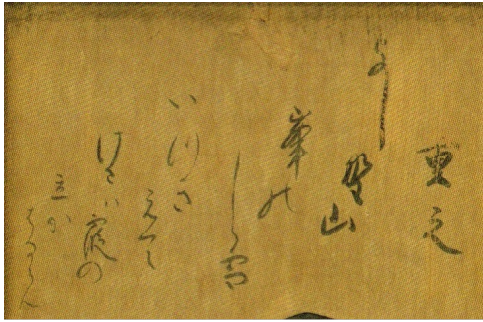 重之
よし
野山
峯の
しら雪
いつき
えて
けさハ霞の
立か
はるらん